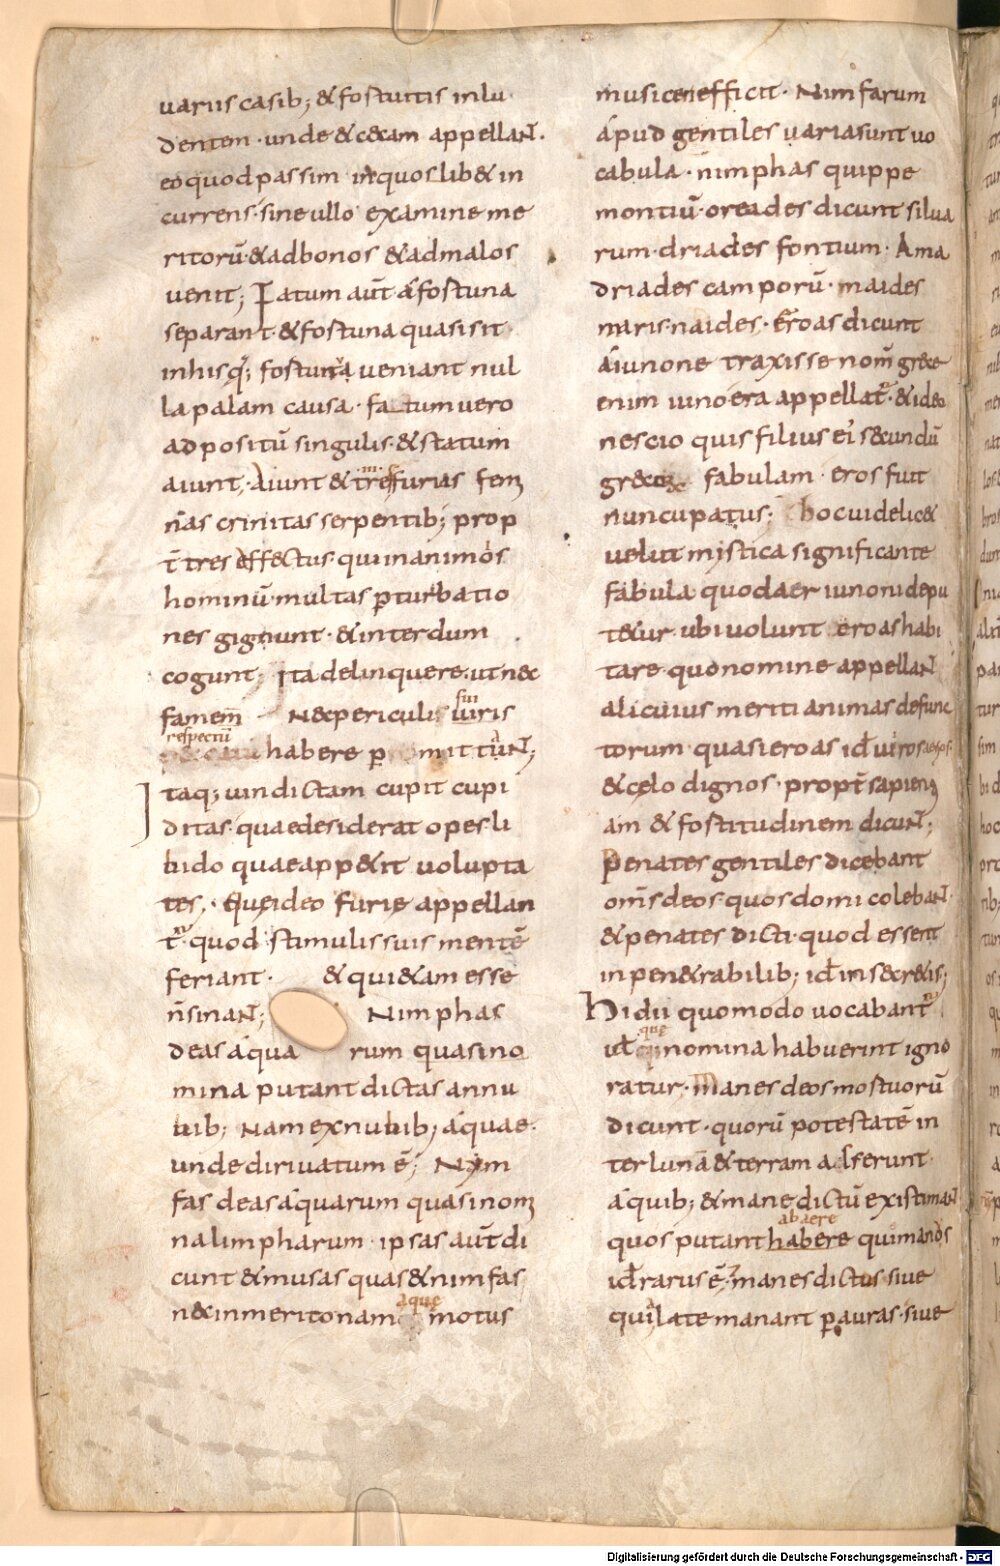 uariis casib; & fortuitis inlu
dentem · unde & cecam appellaN̄.
eo quod passim in quoslib& in
currens · sine ullo examine me
ritorū · & ad bonos & ad malos
uenit; Fatum aūt a fortuna
separant · & fortuna quasi sit
in his q; fortuna ueniant nul
la palam causa · fatum uero
ad positū singulis · & statum
aiunt; Aiunt & tres furias fem
n̄as crinitas serpentib; prop
t̄ tres effectus · qui in animos
hominū multas pturbatio
nes gignunt · & interdum
cogunt; Ita delinquere · ut nec
famem Nec periculi sui uiris
respectū habere pmittuN̄;
Itaq; uindictam cupit cupi
ditas · quae desiderat opes · li
bido quae app&it uolupta
tes · Quę ideo furię appellan
t̄ quod stimulis suis mentē
feriant · & qui&am esse
n̄ sinaN̄; Nimphas
deas aqua rum quasi no
mina putant dictas a nnu
bib; Nam ex nubib; aquae ·
unde diriuatum ē; Nym
fas deas aquarum quasi nom
na limpharum · ipsas aūt di
cunt & musas quas & nimfas
nec inmerito nam aquę motus
musicen efficit · Nimfarum
apud gentiles uaria sunt uo
cabula · nimphas quippe
montiū · oreades dicunt silua
rum · driades fontium · Ama
driades camporū · maides
maris · naides · Eroas dicunt
a iunone traxisse nom̄ grece
enim iuno era appellat̄ · & ideo
nescio quis filius ei secundū
grecoꝝ fabulam · eros fuit
nuncupatus; hoc uidelic&
uelut mystica significante
fabula quod aer iunoni depu
t&ur · ubi uolunt eroas habi
tare quo nomine appellaN̄
alicuius meriti animas defunc
torum quasi eroas id̄ uiros aerios
& cęlo dignos · propt̄ sapien
am & fortitudinem dicuN̄;
penates gentiles dicebant
om̄s deos quos domi colebaN̄ ·
& penates dicti · quod essent
in pen&rabilib; id̄ in secr&is;
Hi dii quomodo uocabant̄
ut̄ quę nomina habuerint igno
ratur · Manes deos mortuorū
dicunt · quorū potestatē in
ter lunā & terram adserunt
a quib; & mane dictū existimaN̄
abaere
quos putant habere qui manos
id̄ rarus ē; manes dictus · siue
quia late manant p auras · siue
Digitalisierung gefördert durch die Deutsche Forschungsgemeinschaft - DFG